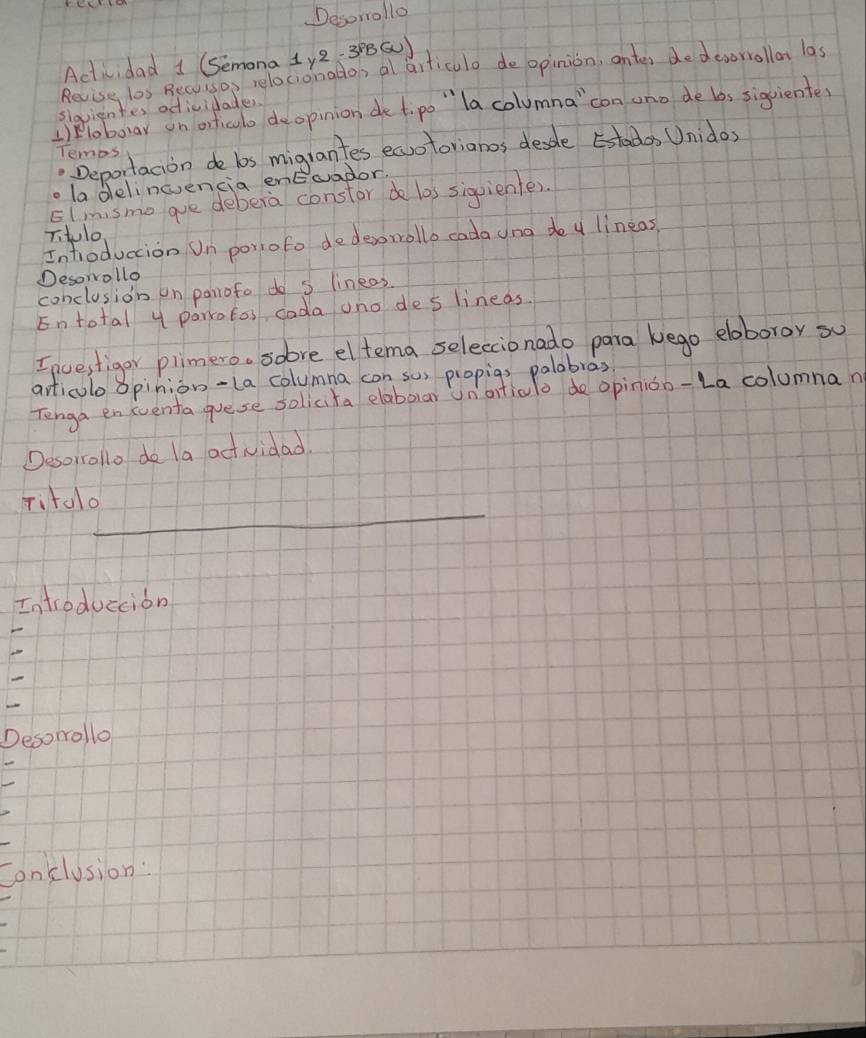 Desorrollo
Actividad 1 (Semana 1 y 2 - 3ºBGU)
Revise los Recursos relocionados al articulo de opinión, antes de desorrollar las
siguientes actividades.
1) Elaborar un articulo de opinion de tipo "la columna" con uno de los siguientes
Temas
• Deportación de los migrantes ecuotorianos desde Estados Unidos
• la delincuencia en Ecuador.
El mismo que deberà constar de los siguientes.
Titulo
Introducción Un porrofo de desorrollo cada uno de 4 lineas.
Desorrollo
conclusión un parrofo de 5 lineas.
En total 4 parrofos, cada uno de 5 lineas.
Investigar primero. sobre el tema seleccionado para luego eloboror su
articulo opinión - la columna con sus propias palabras.
Tenga en cuenta que se solicita elaborar un articulo de opinión - La columna n
Desorrollo de la actividad.
Titulo
Introducción
Desorrollo
Conclusion: